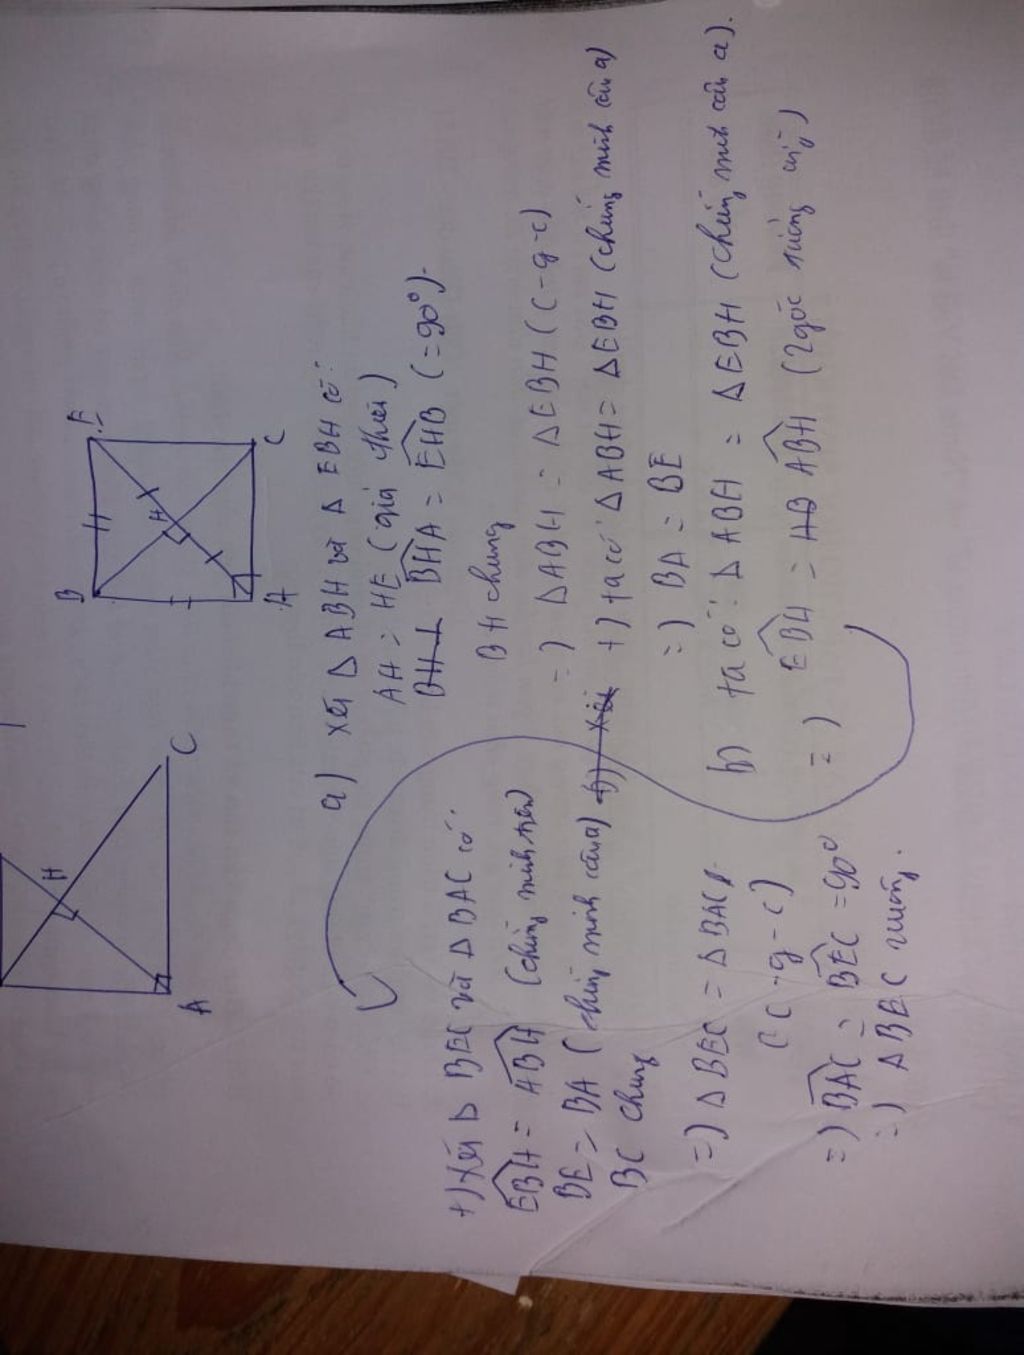 A
H
C
B
E
H
A
C
a) xét Δ ABH và Δ EBH có:
AH = HE (giả thiết)
BH⊥ BHA = EHB (=90°).
BH chung
=) Δ ABH = Δ EBH (c-g-c)
b) Xét +) ta có Δ ABH = Δ EBH (chứng minh câu a)
=) BA = BE
b) ta có: Δ ABH = Δ EBH (chứng minh câu a).
=) EBH = HB ABH (2 góc tương ứng)
+) Xét Δ BEC và Δ BAC có:
EBH = ABH (chứng minh trên)
BE = BA (chứng minh câu a)
BC chung
=) Δ BEC = Δ BAC
(c-g-c)
=) BAC = BEC = 90°
=) Δ BEC vuông.